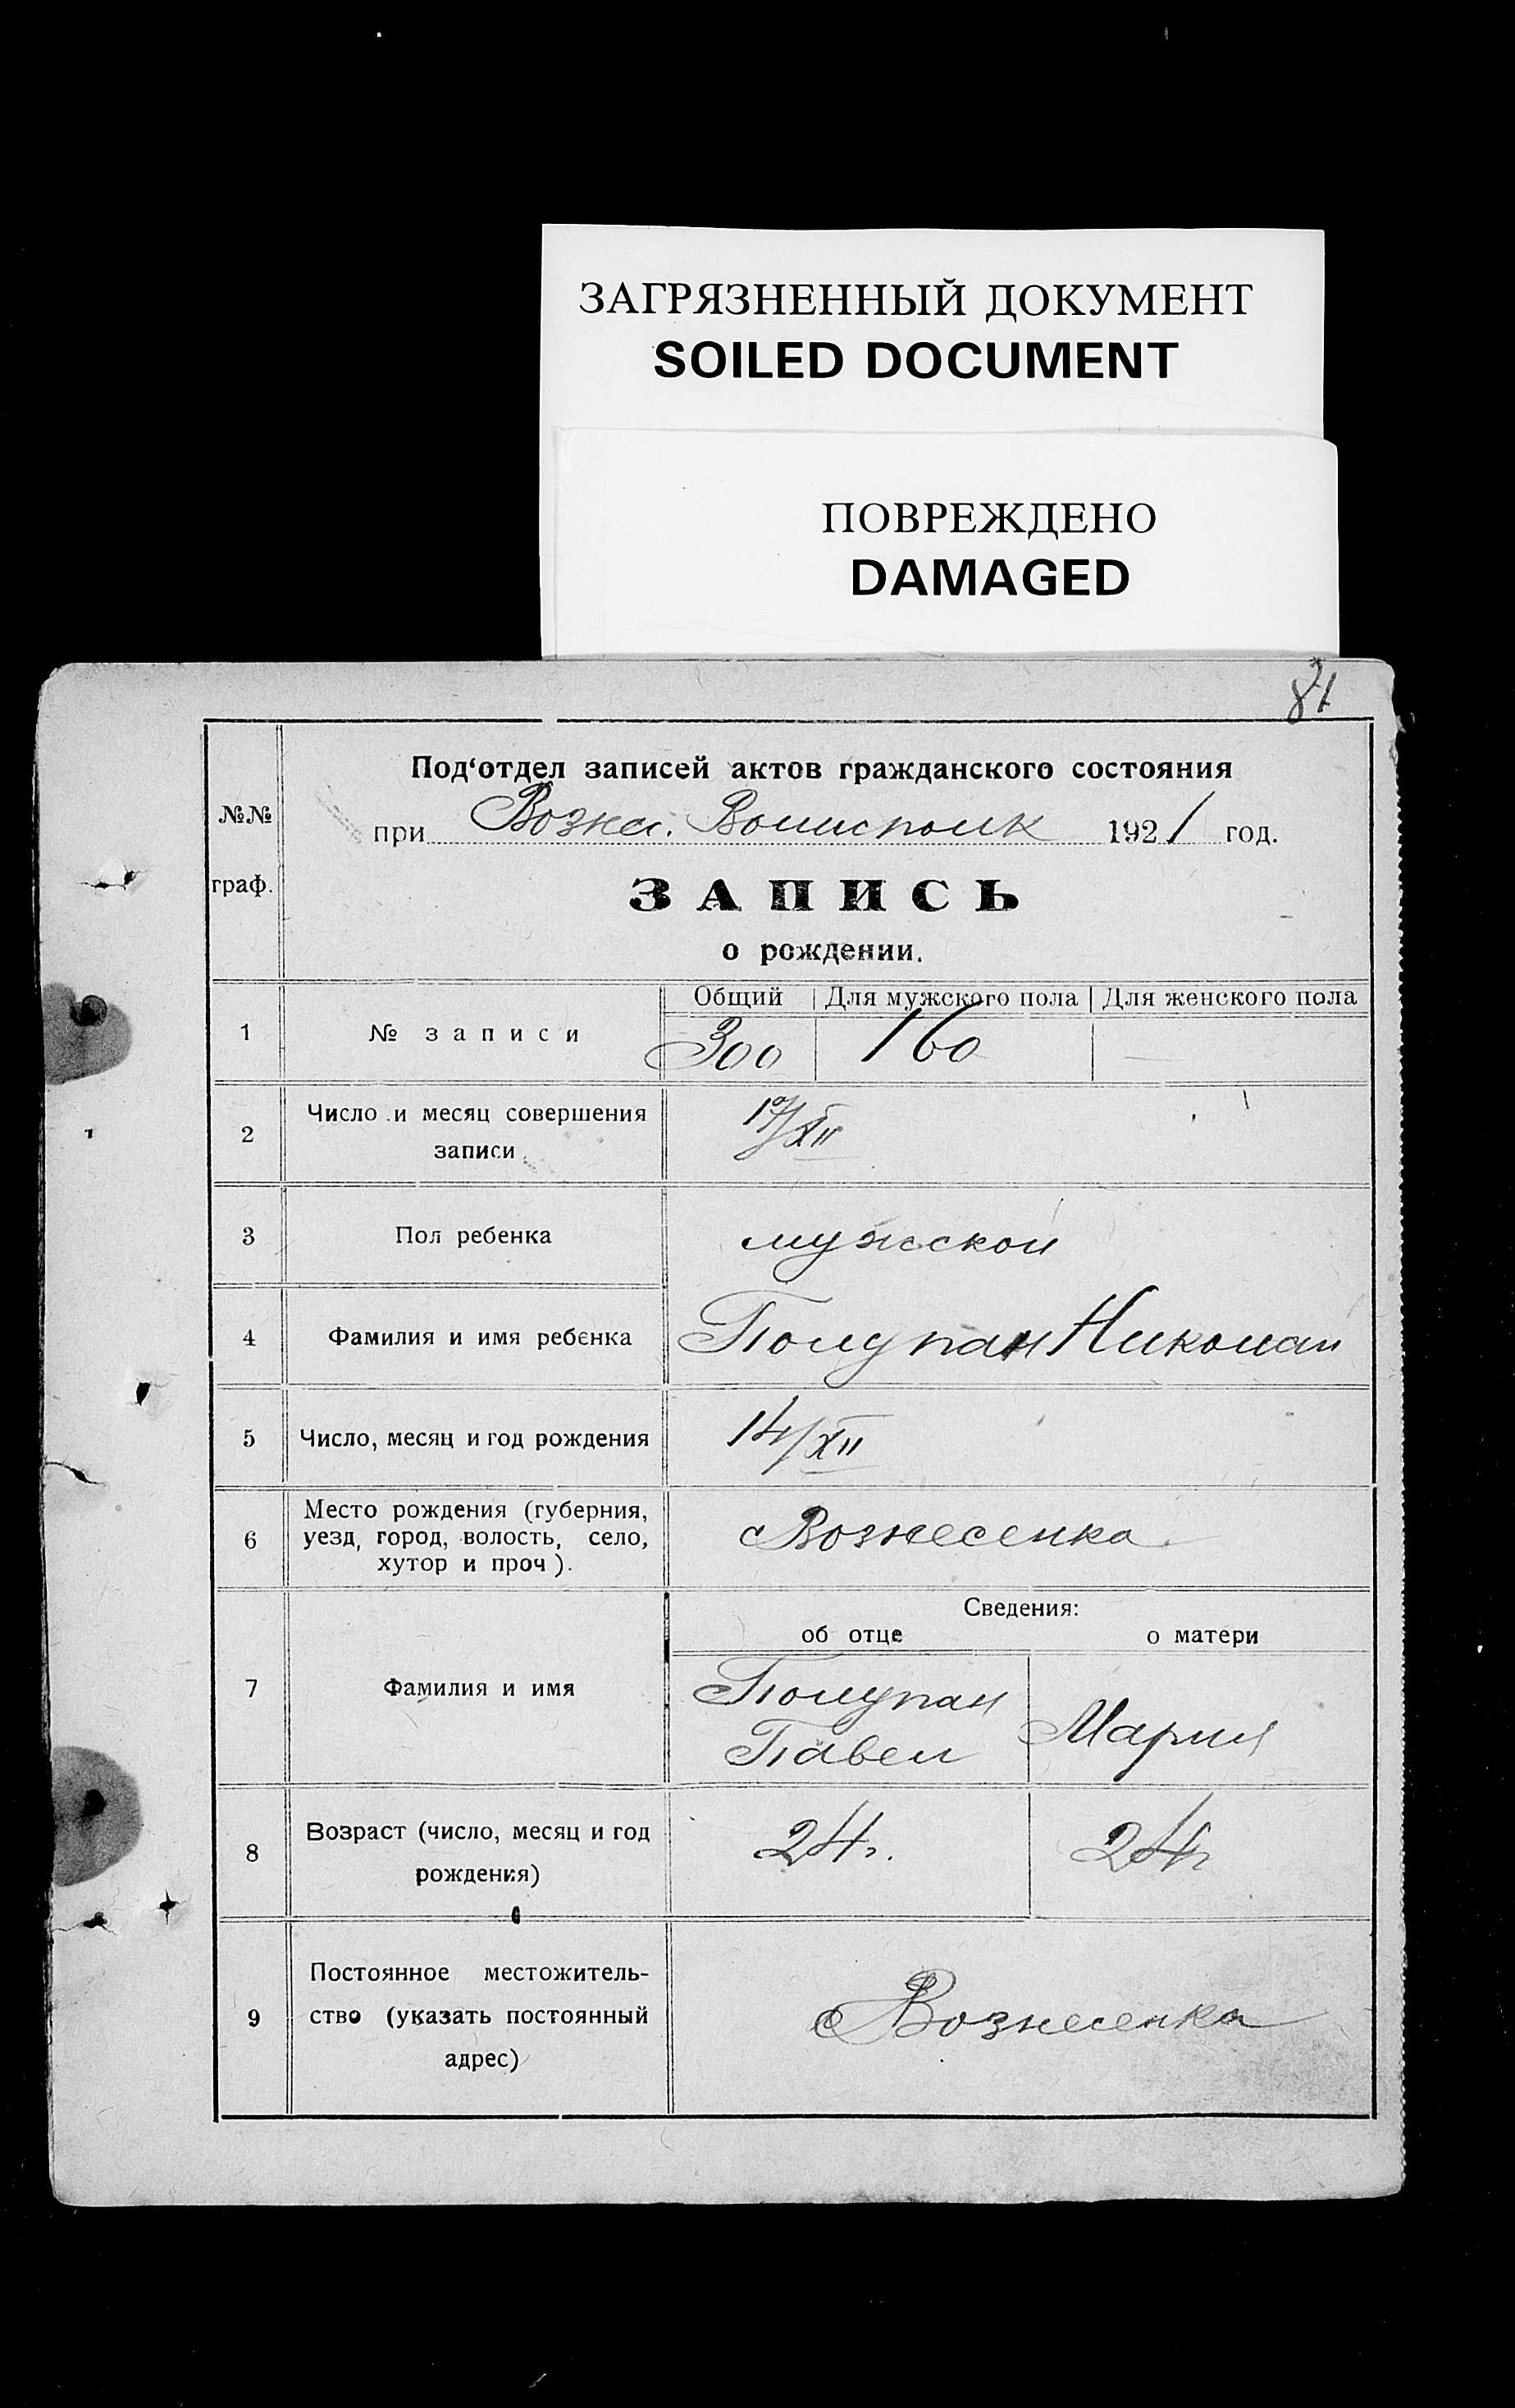 ЗАГРЯЗНЕННЫЙ ДОКУМЕНТ
SOILED DOCUMENT
ПОВРЕЖДЕНО
DAMAGED
81
Под‘отдел записей актов гражданского состояния
№№ граф.
при Вознес. Волисполк 1921 год.
ЗАПИСЬ
о рождении.
Общий Для мужского пола Для женского пола
1 № записи 300 160 —
2 Число и месяц совершения
записи /XII
3 Пол ребенка мужской
4 Фамилия и имя ребенка Полупан Николай
5 Число, месяц и год рождения 14/XII
6 Место рождения (губерния,
уезд, город, волость, село,
хутор и проч).
с Вознесенка
Сведения:
об отце о матери
7 Фамилия и имя Полупан
Павел Мария
8 Возраст (число, месяц и год
рождения) 24г. 24г
9 Постоянное местожитель-
ство (указать постоянный
адрес)
с Вознесенка